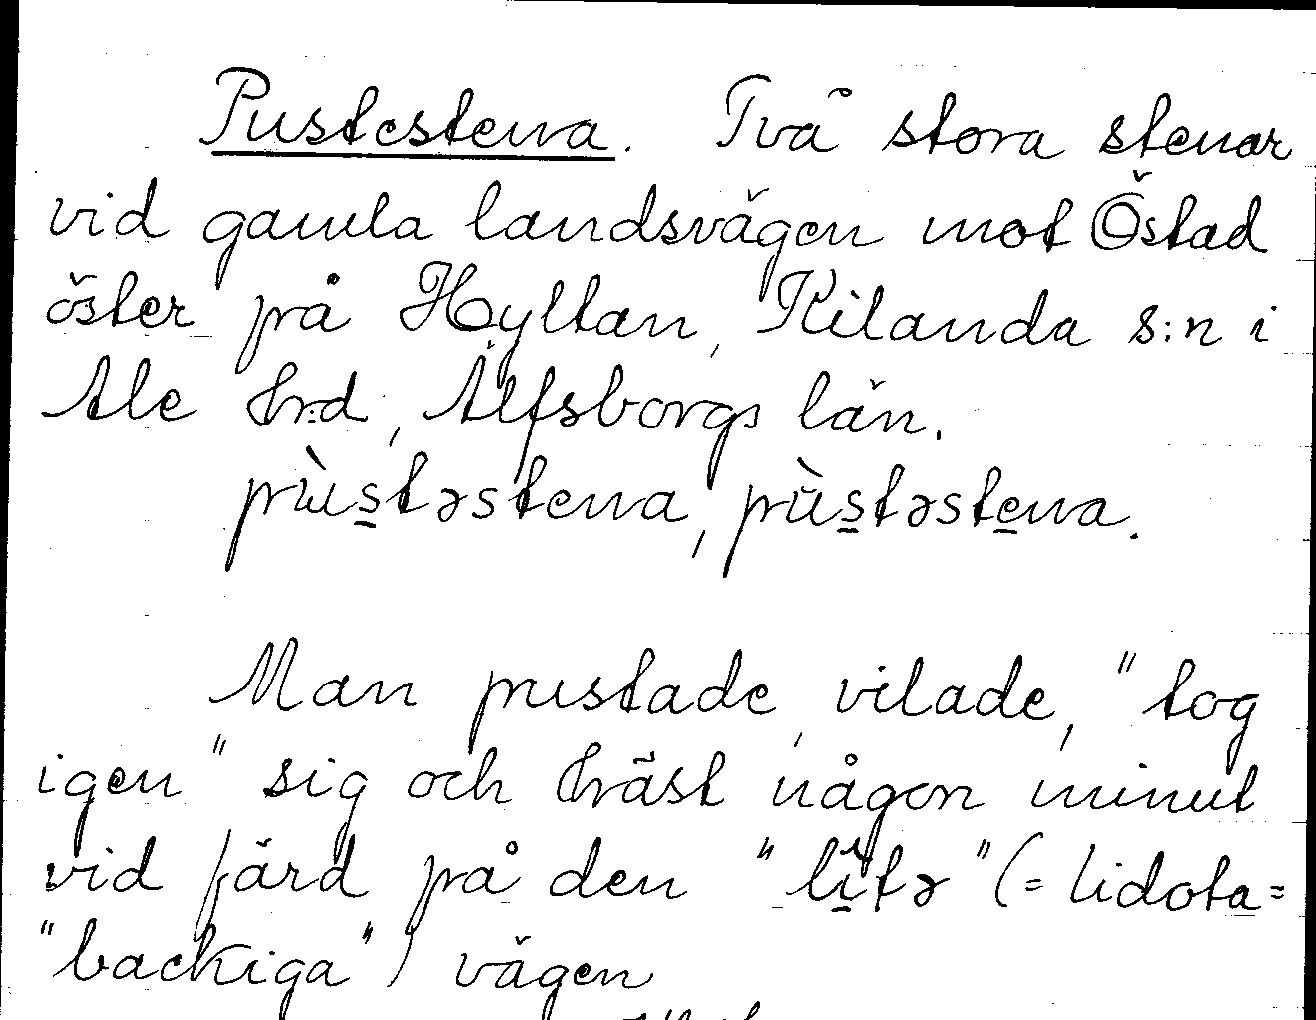 Pustestena. Två stora stenar
vid gamla landsvägen mot Östad
öster på Hyltan, Kilanda s:n i
Ale hrd, Älfsborgs län.
pùs̠təstena, pùs̠təste̠na.
Man pustade, vilade, "tog
igen" sig och häst någon minut
vid färd på den "lì̠tə" (= lidota =
"backiga") vägen